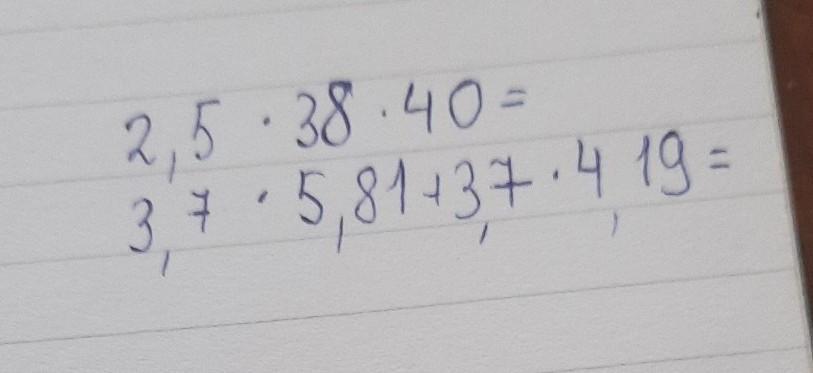 2,5 · 38 · 40 =
3,7 · 5,81 + 3,7 · 4,19 =